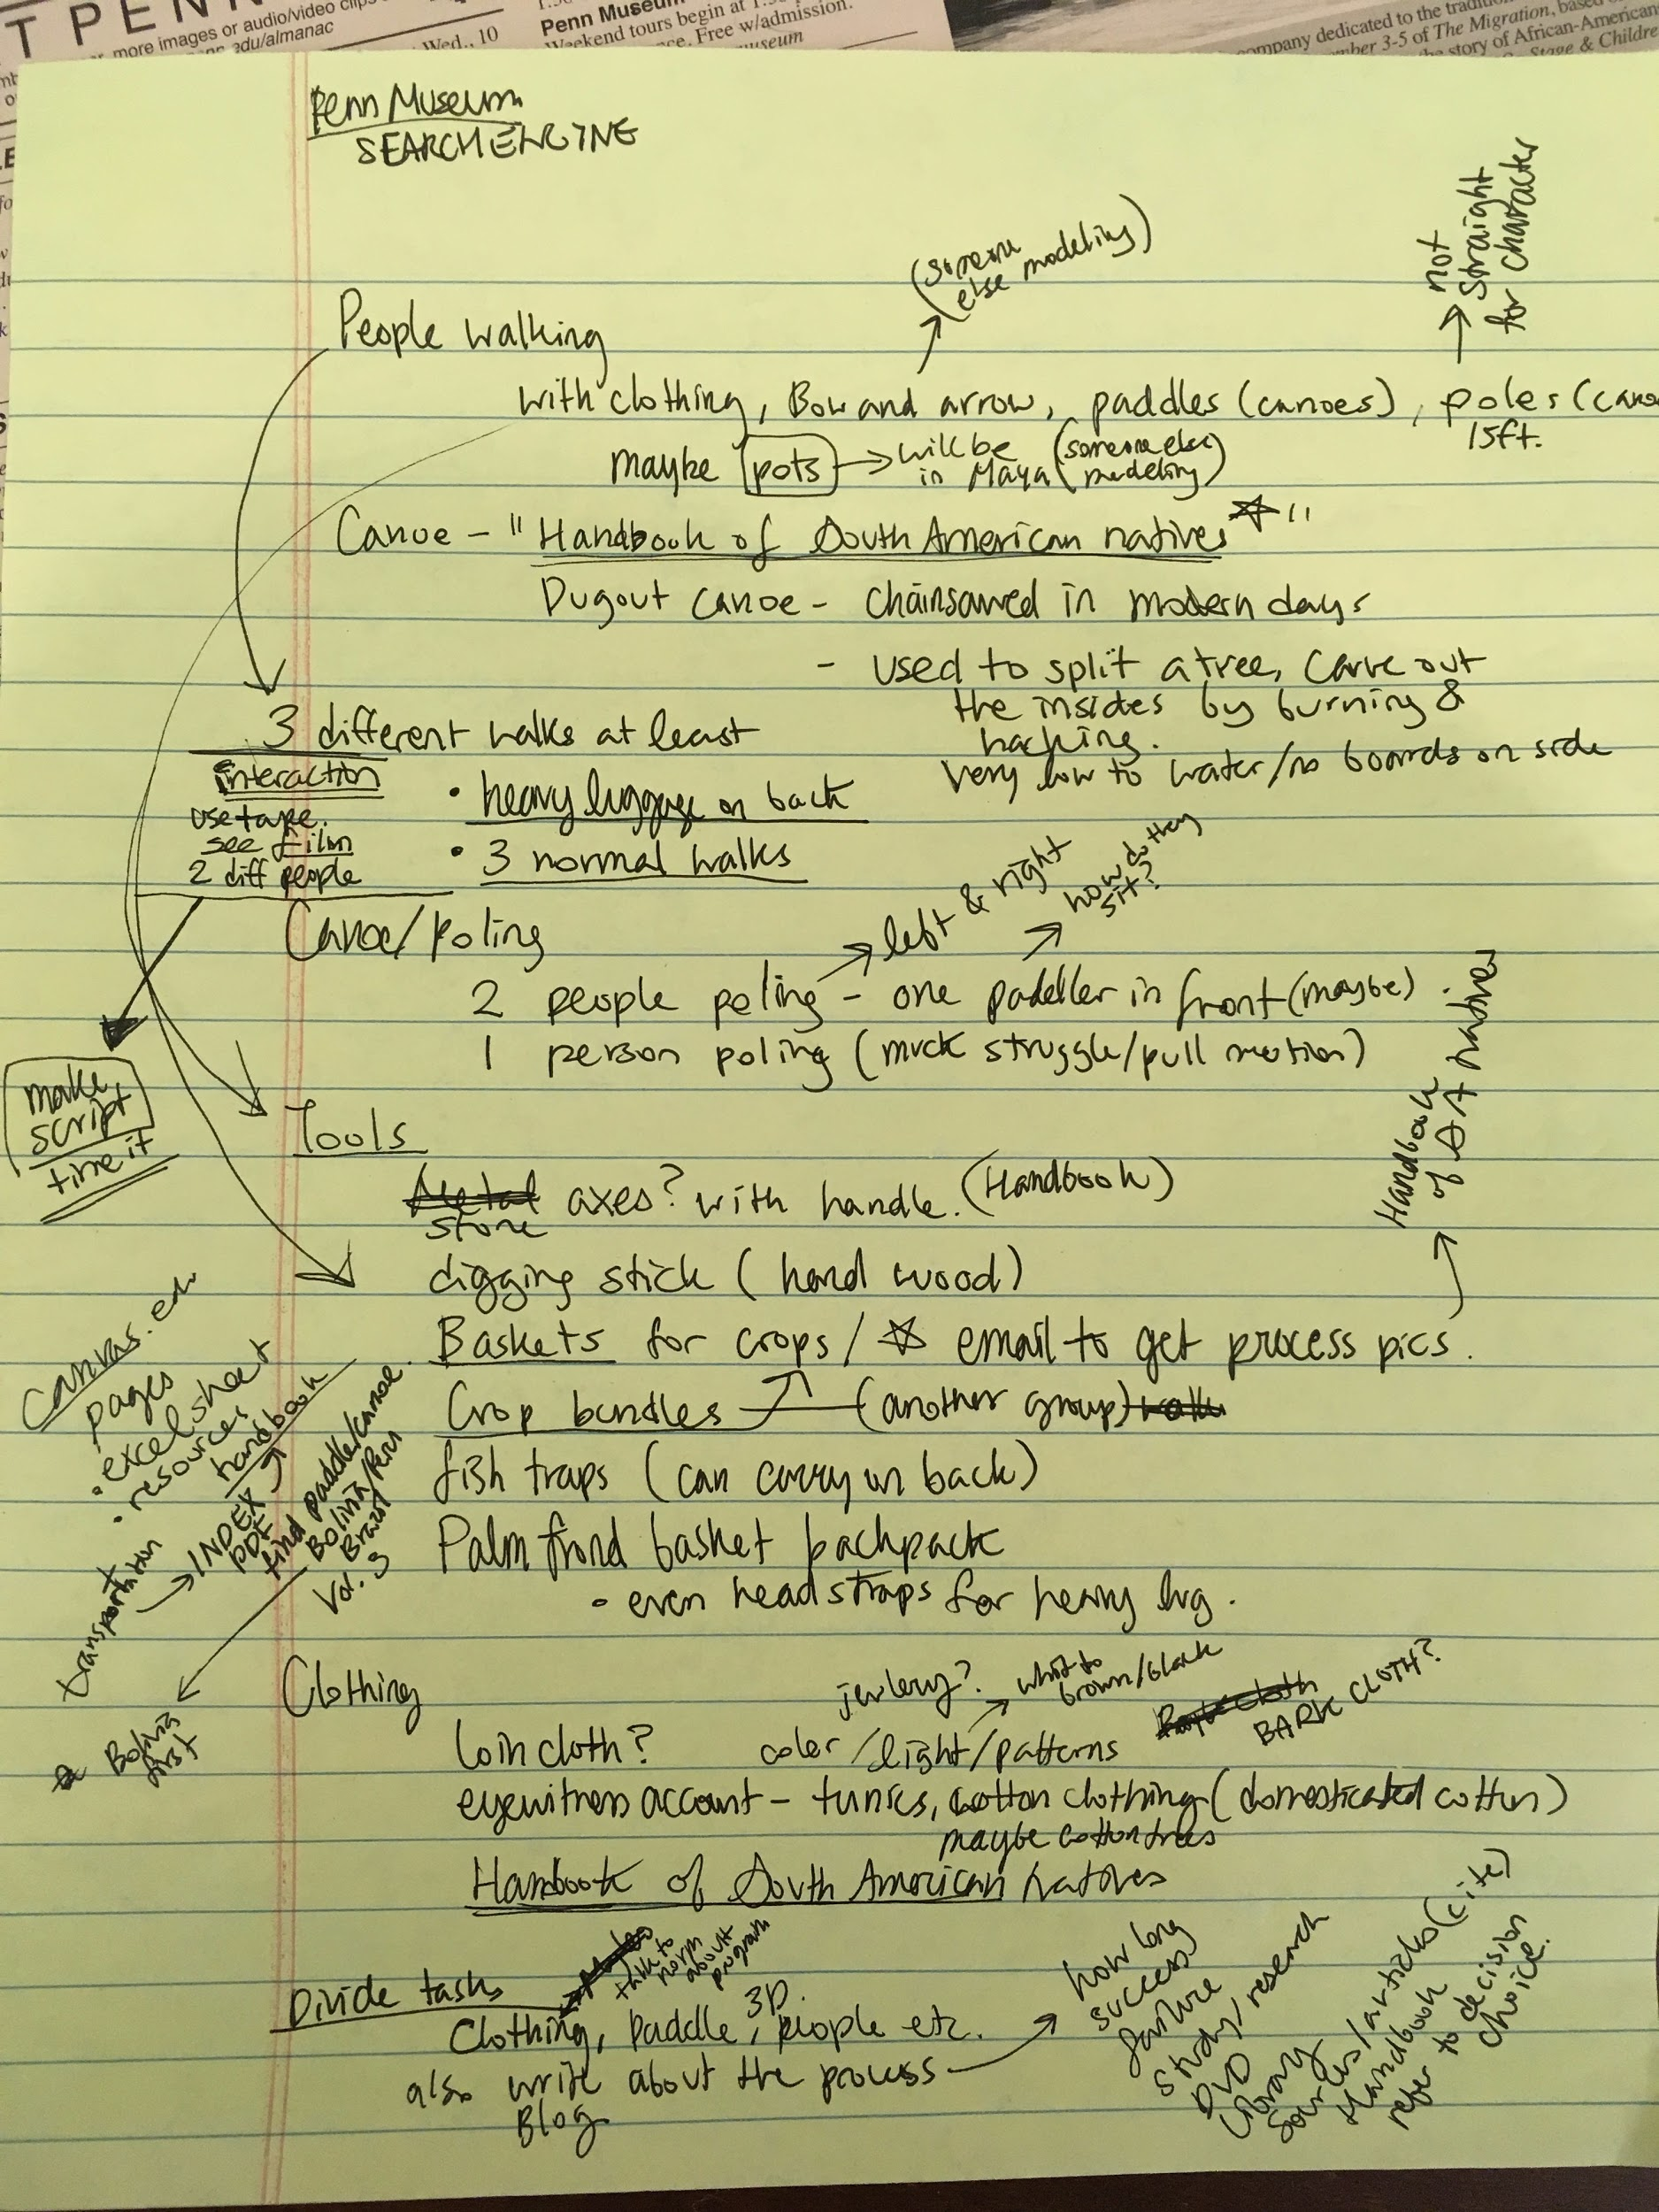 T PENN
more images or audio/video clips
edu/almanac
Wed., 10
Penn Museum
Weekend tours begin at 1:30
Free w/admission.
museum
company dedicated to the traditi
mber 3-5 of The Migration, based
story of African-American
Stage & Childre
Penn Museum
SEARCH ENGINE
(someone
else modeling)
not
straight
for character
People walking
with clothing, Bow and arrow, paddles (canoes), poles (cano
15ft.
maybe pots → will be
in Maya (someone else
modeling)
Canoe - "Handbook of South American natives ☆"
Dugout canoe - chainsawed in modern days
- used to split a tree, carve out
the insides by burning &
hacking.
very low to water/no boards on side
3 different walks at least
interaction
use tape.
see film
2 diff people
• heavy luggage on back
• 3 normal walks
Canoe/poling
left & right
how do they
sit?
2 people poling - one paddler in front (maybe).
1 person poling (much struggle/pull motion)
make
script
time it
Tools
Metal
stone axes? with handle. (Handbook)
digging stick (hard wood)
Baskets for crops / ☆ email to get process pics.
Handbook
of SA natives
Crop bundles (another group)
fish traps (can carry on back)
Palm frond basket backpack
• even head straps for heavy lug.
Canvas.edu
pages
• excel sheet
• resources
handbook
transportation → INDEX
PDF
find paddle/canoe
Bolivia/Peru
Brazil
Vol. 3
☆ Bolivia
first
Clothing
jewlery?
whit to
brown/black
Loin cloth? color/light/patterns
BARK CLOTH?
eyewitness account - tunics, cotton clothing (domesticated cotton)
maybe cotton trees
Handbook of South American natives
Divide tasks
talk to
norm
about
program
Clothing, Paddle, 3D people etc.
also write about the process
Blog
how long
success
failure
study/research
DVD
library
sources/articles (cite)
Handbook
refer to decision
choice.